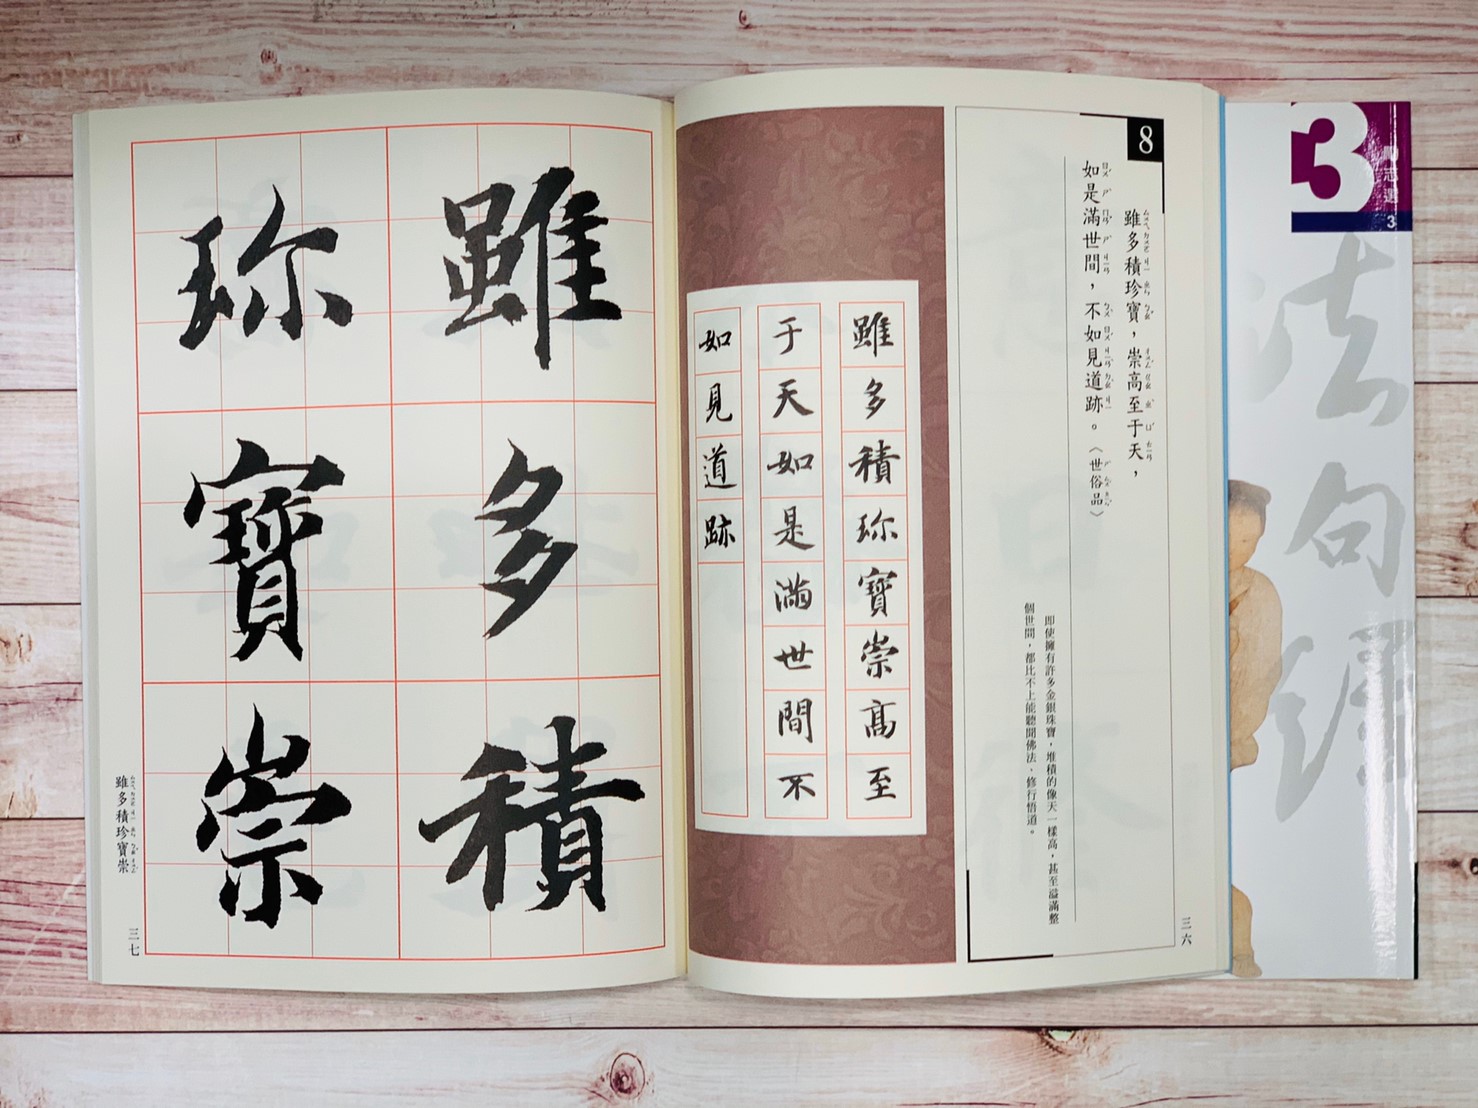 8
雖多積珍寶，崇高至于天，
如是滿世間，不如見道跡。〈世俗品〉
即使擁有許多金銀珠寶，堆積的像天一樣高，甚至溢滿整
個世間，都比不上能聽聞佛法，修行悟道。
三六
雖多積珎寶崇高至
于天如是滿世間不
如見道跡
雖多積
珎寶崇
雖多積珍寶崇
三七
3
志選
3
法句經